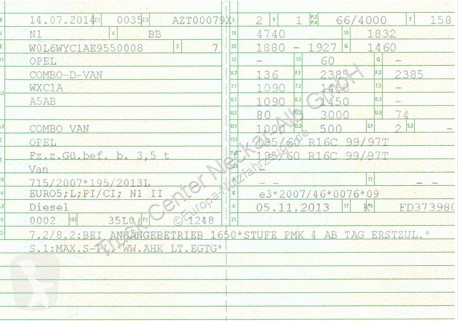 14.07.2014 0035 AZT00079X 2 9 1 66/4000 158
N1 BB 4740 1832
W0L6WYC1AE9550008 7 1880 - 1927 1460
OPEL - 60 -
COMBO-D-VAN 136 2385 2385
WXC1A 1090 1450
A5AB 1090 1450
80 3000 74
COMBO VAN 1000 500 2 -
OPEL 195/60 R16C 99/97T
Fz.z.Gü.bef. b. 3,5 t 195/60 R16C 99/97T
Van
715/2007*195/2013L - - -
EURO5;L;PI/CI; N1 II e3*2007/46*0076*09
Diesel 05.11.2013 K
0002 35L0 1248
7.2/8.2:BEI ANHÄNGEBETRIEB 1650*STUFE PMK 4 AB TAG ERSTZUL.*
S.1:MAX.S-PL. *WW.AHK LT.EGTG*
Truck Center Neckar-Alb GmbH